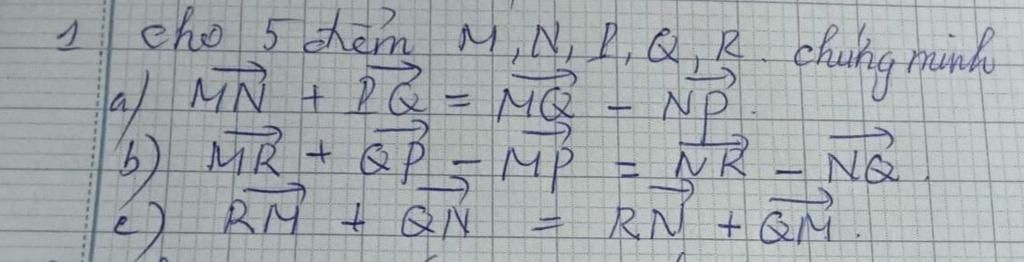 1 cho 5 điểm M, N, P, Q, R. chứng minh
a) \overrightarrow{MN} + \overrightarrow{PQ} = \overrightarrow{MQ} - \overrightarrow{NP}.
b) \overrightarrow{MR} + \overrightarrow{QP} - \overrightarrow{MP} = \overrightarrow{NR} - \overrightarrow{NQ}.
c) \overrightarrow{RM} + \overrightarrow{QN} = \overrightarrow{RN} + \overrightarrow{QM}.